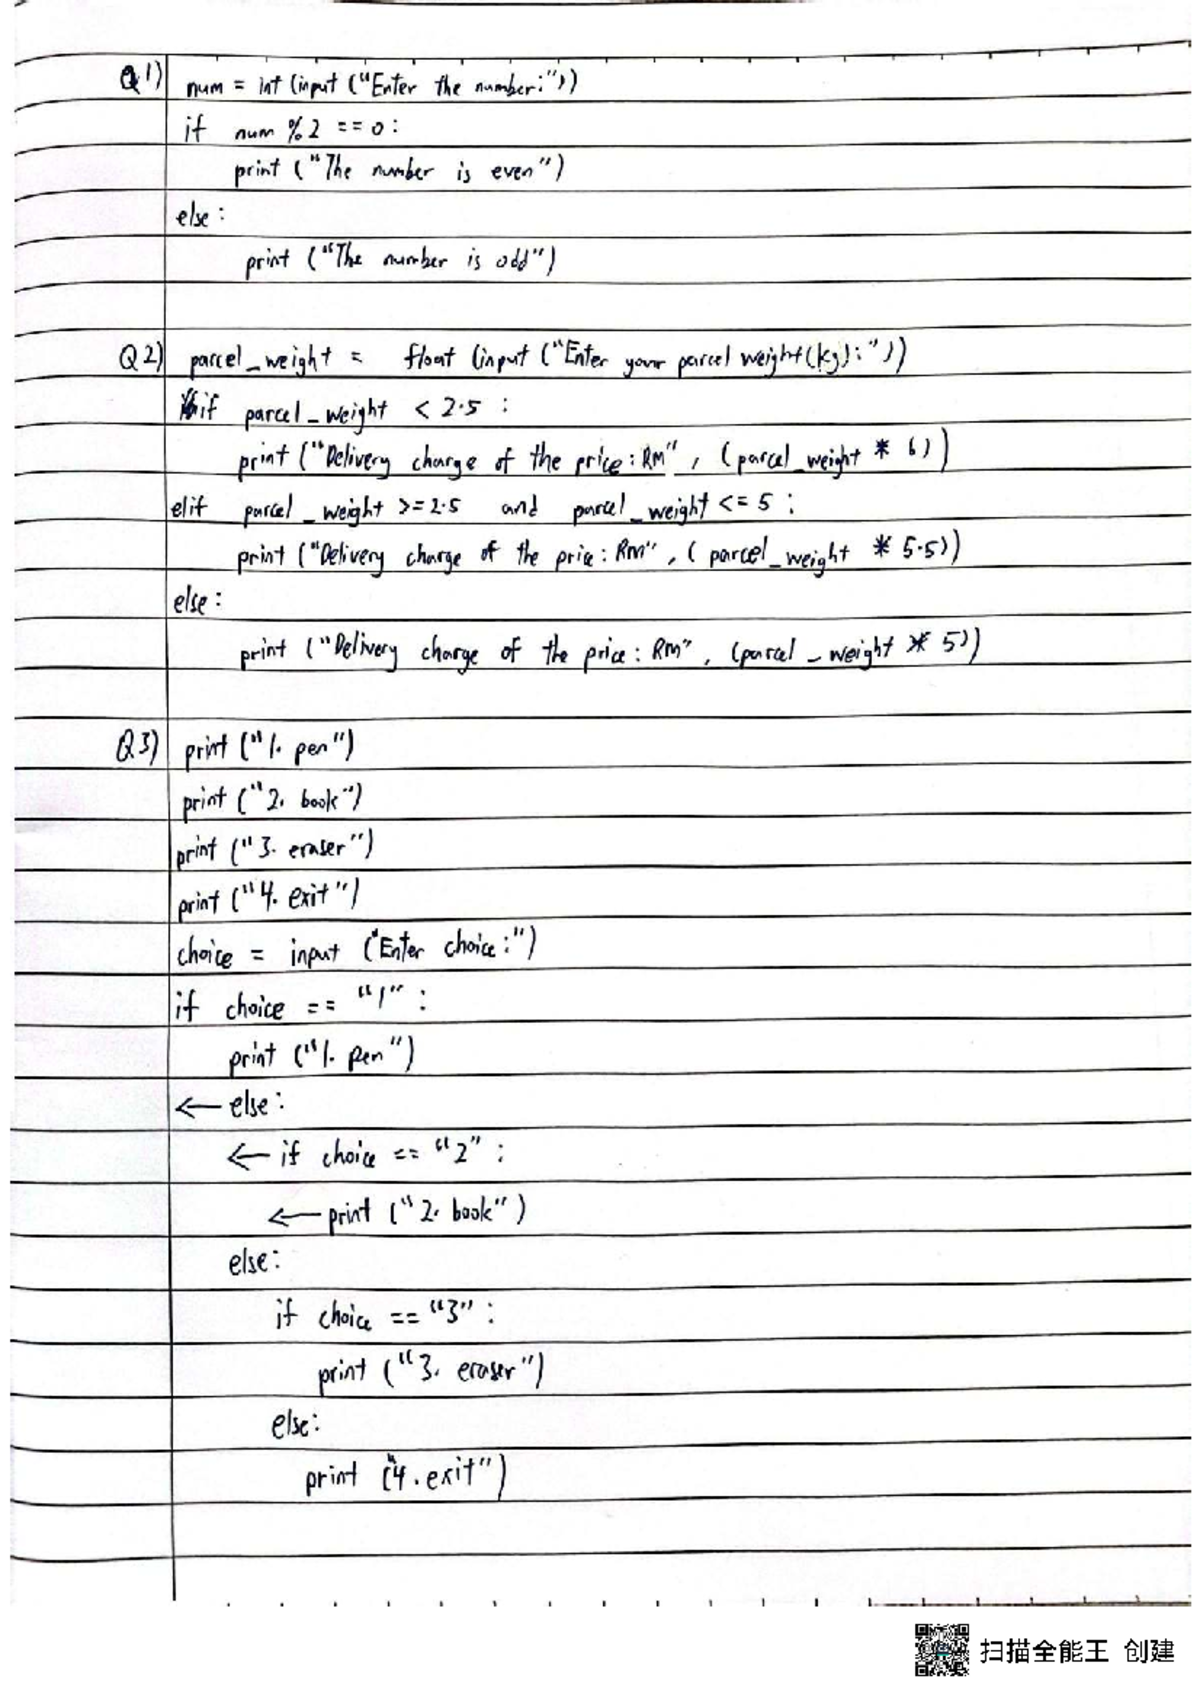 Q1) num = int (input ("Enter the number:"))
if num % 2 == 0:
print ("The number is even")
else:
print ("The number is odd")
Q2) parcel_weight = float (input ("Enter your parcel weight(kg):"))
if parcel_weight < 2.5 :
print ("Delivery charge of the price: RM", (parcel_weight * 6))
elif parcel_weight >= 2.5 and parcel_weight <= 5 :
print ("Delivery charge of the price: RM", (parcel_weight * 5.5))
else:
print ("Delivery charge of the price: RM", (parcel_weight * 5))
Q3) print ("1. pen")
print ("2. book")
print ("3. eraser")
print ("4. exit")
choice = input ("Enter choice:")
if choice == "1" :
print ("1. pen")
← else:
← if choice == "2" :
← print ("2. book")
else:
if choice == "3" :
print ("3. eraser")
else:
print ("4. exit")
扫描全能王 创建